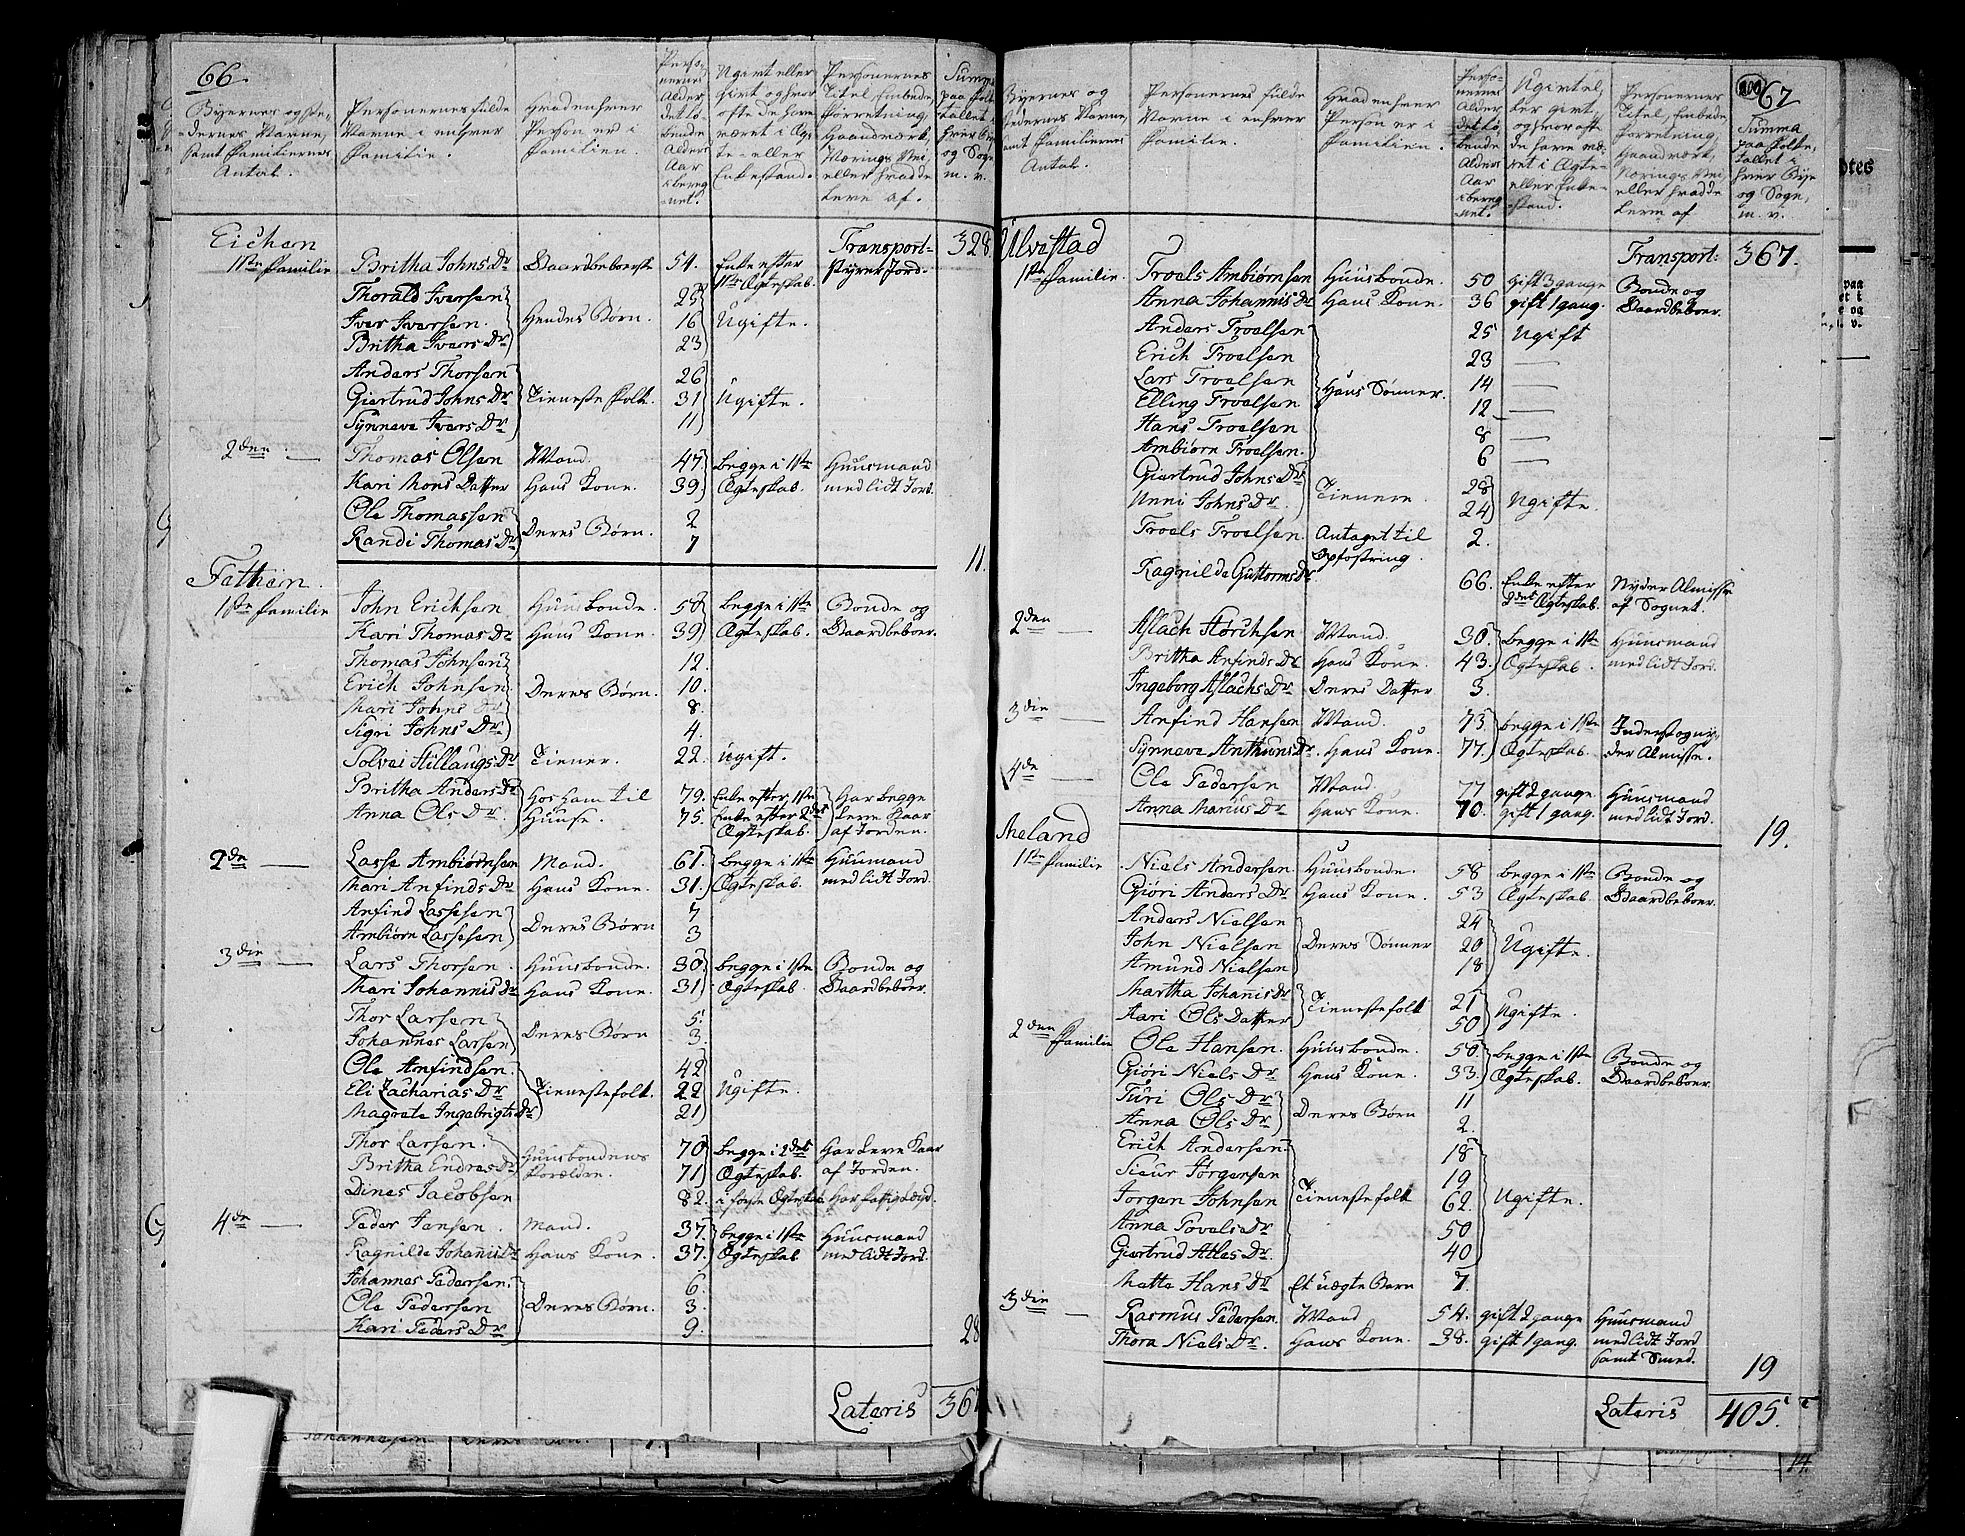 66.
Byernes og Ste-
dernes Navne,
samt Familiernes
Antal.
Personernes fulde
Navne i enhver
Familie.
Hvad enhver
Person er i
Familien.
Perso-
nernes
Alder
det lø-
bende
Alders
Aar
ibereg-
net.
Ugift eller
Gift og hvor
ofte de have
været i Æg-
te- eller
Enkestand.
Personernes
Titel, Embede,
Forretning,
Haandværk,
Nærings Vei,
eller hvad de
leve af.
Summa
paa Folke
tallet i
hver Bye
og Sogn
m. v.
Eichen Transport- 328
11te Familie Britha Johns Dr Gaardbeboerske 54. Enke efter 1ste Ægteskab. styrer Jord-
Thorald Iversen 25
Iver Iversen. Hendes Børn. 16 Ugifte.
Britha Ivers Dr 23
Anders Thorsen 26
Giertrud Johns Dr Tieneste Folk. 31 Ugifte.
Synneve Ivers Dr 11
2den Thomas Olsen Mand. 47. begge i 1ste Huusmand
Kari Mons Datter Hans Kone. 39 Ægteskab. med lidt Jord.
Ole Thomassen 2
Randi Thomas Dr Deres Børn. 7
11.
Fathen.
1ste Familie John Erichsen Huusbonde. 50 begge i 1ste Bonde og
Kari Thomas Dr Hans Kone. 39 Ægteskab. Gaardbeboer.
Thomas Johnsen 12.
Erich Johnsen Deres Børn. 10.
Mari Johns Dr 8.
Sigri Johns Dr 4.
Solvei Hillaugs Dr Tiener. 22. ugift.
Britha Anders Dr Hos ham til 79. Enke efter 1ste Har begge
Anna Ols Dr. Huuse. 75. Enke efter 2det Ægteskab. Leve Kaar af Jorden.
2de Lasse Ambiørnsen Mand. 61. begge i 1ste Huusmand
Mari Anfinds Dr Hans Kone. 31. Ægteskab. med lidt Jord.
Anfind Lassesen 7
Ambiørn Lassesen Deres Børn 3
3die Lars Thorsen. Huusbonde. 30. begge i 1ste Bonde og
Mari Johannis Dr Hans Kone. 31 Ægteskab Gaardbeboer.
Thor Larsen 5.
Johannes Larsen Deres Børn 3.
Ole Anfindsen. 42
Eli Zacharias Dr Tienestefolk. 22 Ugifte.
Magrete Ingebrigts Dr 21
Thor Larsen. Huusbondens 70 begge i 2det Har Leve Kaar
Britha Endres Dr Forældre. 71 Ægteskab. af Jorden.
Dines Jacobsen 82. i første Ægteskab
4de Peder Jensen. Mand. 37. begge i 1ste Huusmand
Ragnilde Johannis Dr Hans Kone. 37. Ægteskab med lidt Jord.
Johannes Pedersen. 6.
Ole Pedersen Deres Børn. 3.
Kari Peders Dr 9.
28
Lateris 367
100
67
Byernes og
Stedernes Navne,
samt Familiernes
Antal.
Personernes fulde
Navne i enhver
Familie.
Hvad enhver
Person er i
Familien.
Perso-
nernes
Alder
det lø-
bende
Alders
Aar
ibereg-
net.
Ugift el-
ler gift,
og hvor ofte
de have væ-
ret i Ægte-
eller Enke-
stand.
Personernes
Titel, Embede
Forretning,
Haandværk,
Nærings Vei,
eller hvad de
leve af
Summa
paa Folke-
tallet i
hver Bye
og Sogn,
m. v.
Ulvestad Transport: 367.
1ste Familie. Troels Ambiørnsen Huusbonde. 50 gift 3 gange Bonde og
Anna Johannis Dr Hans Kone. 36 gift 1 gang. Gaardbeboer.
Anders Troelsen 25 Ugift
Erich Troelsen 23 —
Lars Troelsen Hans Sønner. 14 —
Elling Troelsen 12 —
Hans Troelsen 8 —
Ambiørn Troelsen. 6 —
Giertrud Johns Dr Tienere. 28
Unni Johns Dr. 24 Ugifte.
Troels Troelsen. Antaget til Opfostring. 2.
Ragnilde Guttorms Dr. 66. Enke efter 2det Ægteskab. Nyder Almisse af Sognet.
2den — Aslach Størchsen Mand. 30. begge i 1ste Huusmand
Britha Anfinds Dr Hans Kone. 43. Ægteskab. med lidt Jord.
Ingeborg Aslachs Dr Deres Datter 3.
3die — Anfind Hansen Mand. 73. begge i 1ste Inderst og ny-
Synneve Anthuns Dr. Hans Kone. 77. Ægteskab. der Almisse.
4de — Ole Pedersen Mand. 77 gift 2 gange. Huusmand
Anna Marius Dr Hans Kone. 70. gift 1 gang. med lidt Jord.
19.
Meland
1ste Familie Niels Andersen Huusbonde. 58 begge i 1ste Bonde og
Giøri Anders Dr Hans Kone. 53 Ægteskab. Gaardbeboer.
Anders Nielsen 24
John Nielsen Deres Sønner 20 Ugifte.
Amund Nielsen 18
Martha Johanis Dr Tienestefolk 21 Ugifte.
Kari Ols Datter 50
2den Familie Ole Hansen. Huusbonde. 50. begge i 1ste Bonde og
Giöri Niels Dr Hans Kone. 33. Ægteskab. Gaardbeboer.
Turi Ols Dr 11
Anna Ols Dr Deres Børn 2.
Erich Andersen 18
Siur Jørgensen 19
Jørgen Johnsen Tienestefolk 62. Ugifte.
Anna Povels Dr 50
Giertrud Atles Dr. 40
Mette Hans Dr Et uægte Barn 7.
3die — Rasmus Pedersen Mand 54. gift 2 gange Huusmand
Thora Niels Dr. Hans Kone. 38. gift 1 gang. med lidt Jord
samt Smed.
19
Lateris 405.
14.